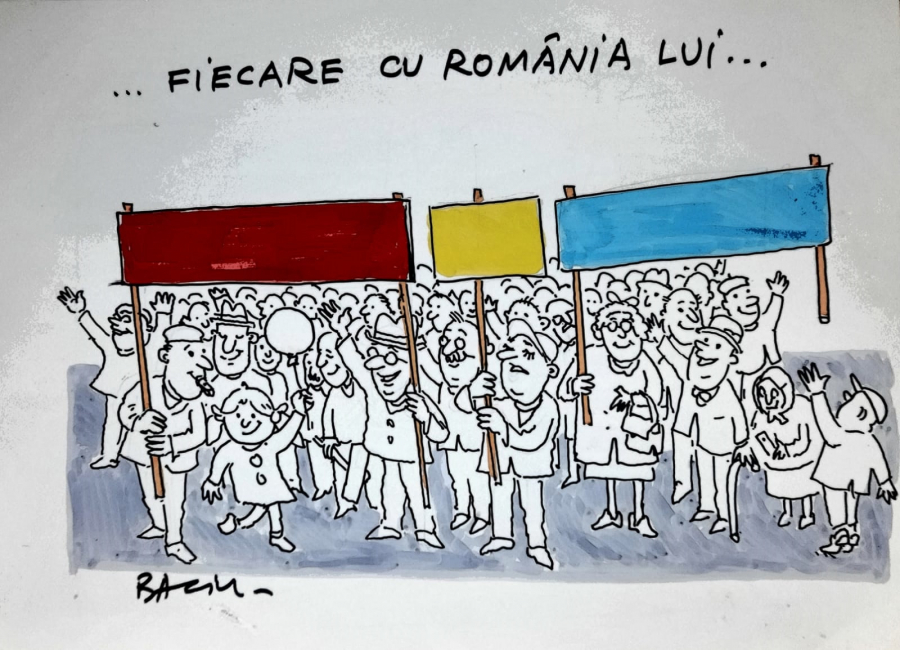 ... FIECARE CU ROMÂNIA LUI...
BACIU